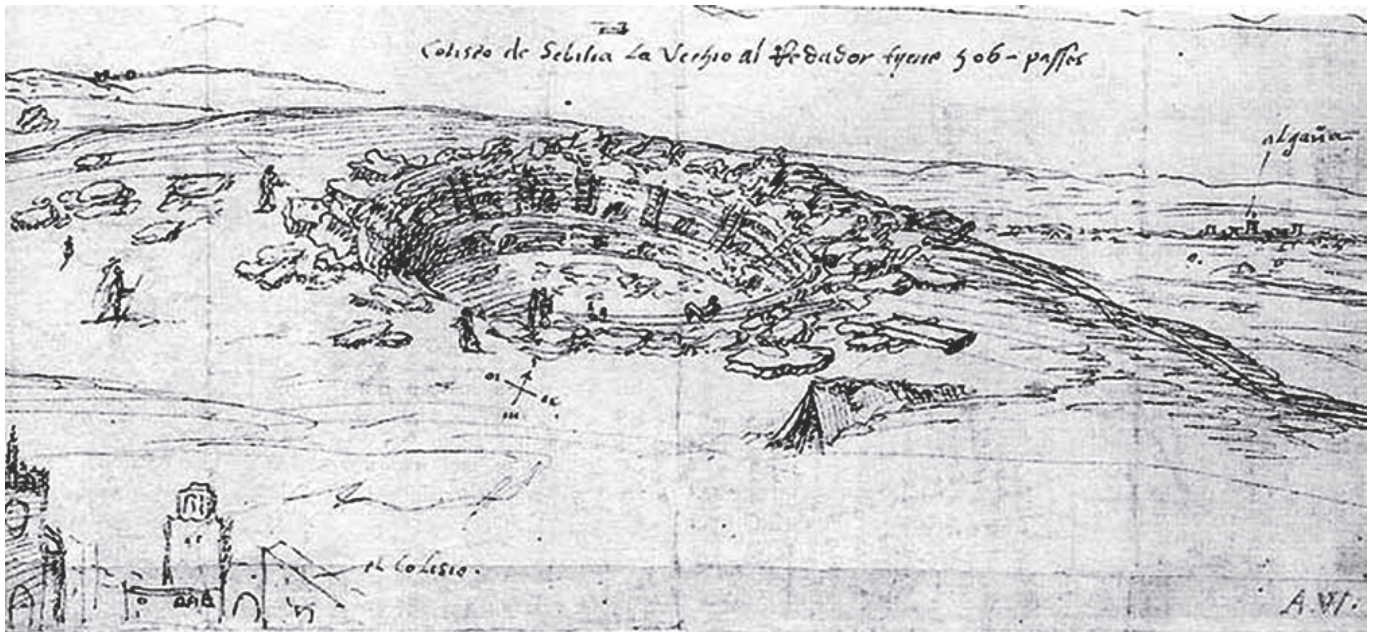 Coliseo de Sebilia La Vechio al Redador tyene 506 - passes
algaña
or
oc
m
el Coliseo.
A. W.